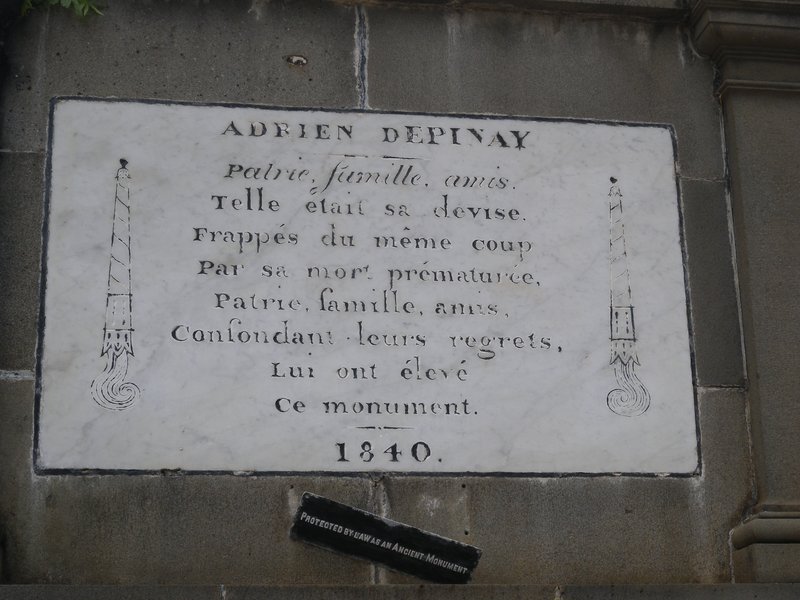 ADRIEN DEPINAY
Patrie, famille, amis.
Telle était sa devise.
Frappés du même coup
Par sa mort prématurée,
Patrie, famille, amis,
Confondant leurs regrets,
Lui ont élevé
Ce monument.
1840.
PROTECTED BY LAW AS AN ANCIENT MONUMENT